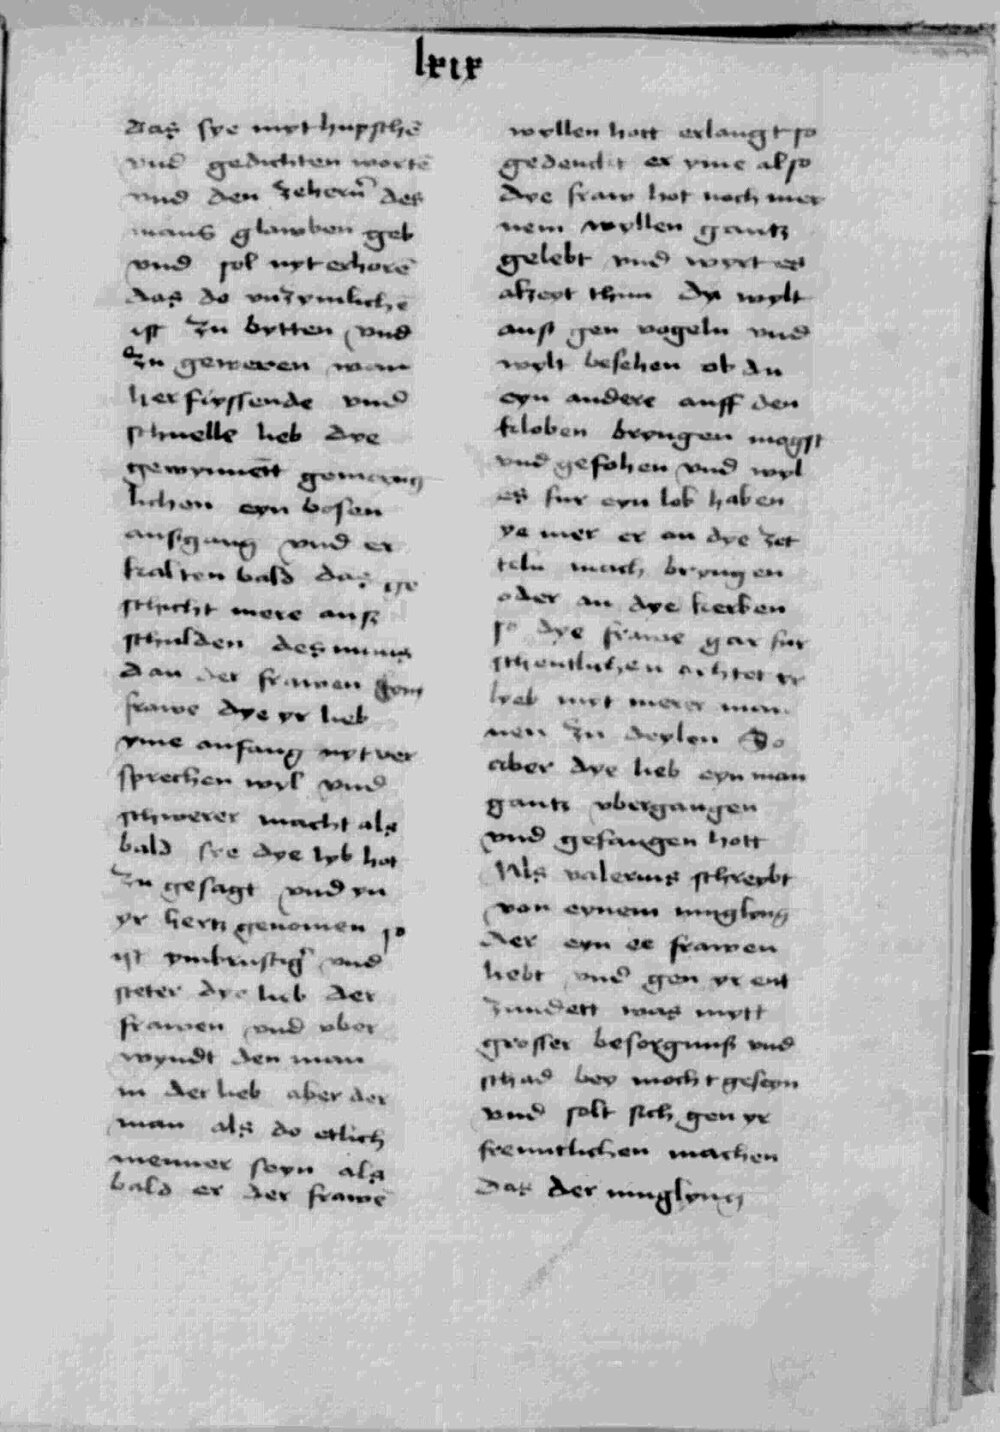 lxix
das sye myt hupschē
vnd gedichten wortē
vnd den zehern̄ des
mans glawben geb
vnd sol nyt erhorē
das do vnzymlichē
ist zu bytten vnd
zu geweren wan
her flyssende vnd
schnelle lieb dye
gewynnētt
lichen eyn bosen
ausgang vnd er
kalten bald das ge
schicht mere ausz
schulden des mans
dan der frawen
frawe dye yr lieb
yme anfang nyt ver
sprechen wyl vnd
schwerer macht als
bald sye dye lyb hot
zu gesagt vnd yn
yr hertz genomen so
ist ynbrustig vnd
steter dye lieb der
frawen vnd vber
wyndt den man
in der lieb aber der
man als do etlich
menner seyn als
bald er der frawē
wyllen hott erlangt so
gedenckt er yme also
dye fraw hot noch mey
nem wyllen gantz
gelebt vnd wyrt es
alzeyt thun du wylt
aus gen vogeln vnd
wylt besehen ob du
eyn andere auff den
kloben bryngen magst
vnd gefohen vnd wyl
es fur eyn lob haben
ye mer er an dye zet
teln mach bryngen
oder an dye kerben
so dye frawe gar fur
schentlichen achtet yr
lyeb myt merer man
nen zu deylen So
aber dye lieb eyn man
gantz vbergangen
vnd gefangen hott
Als valerius schreybt
von eynem iunglyng
der eyn ee frawen
liebt vnd gen yr ent
zundett was mytt
grosser besorgnus vnd
schad bey mocht geseyn
vnd solt sich gen yr
freuntlichen machen
das der iunglyng